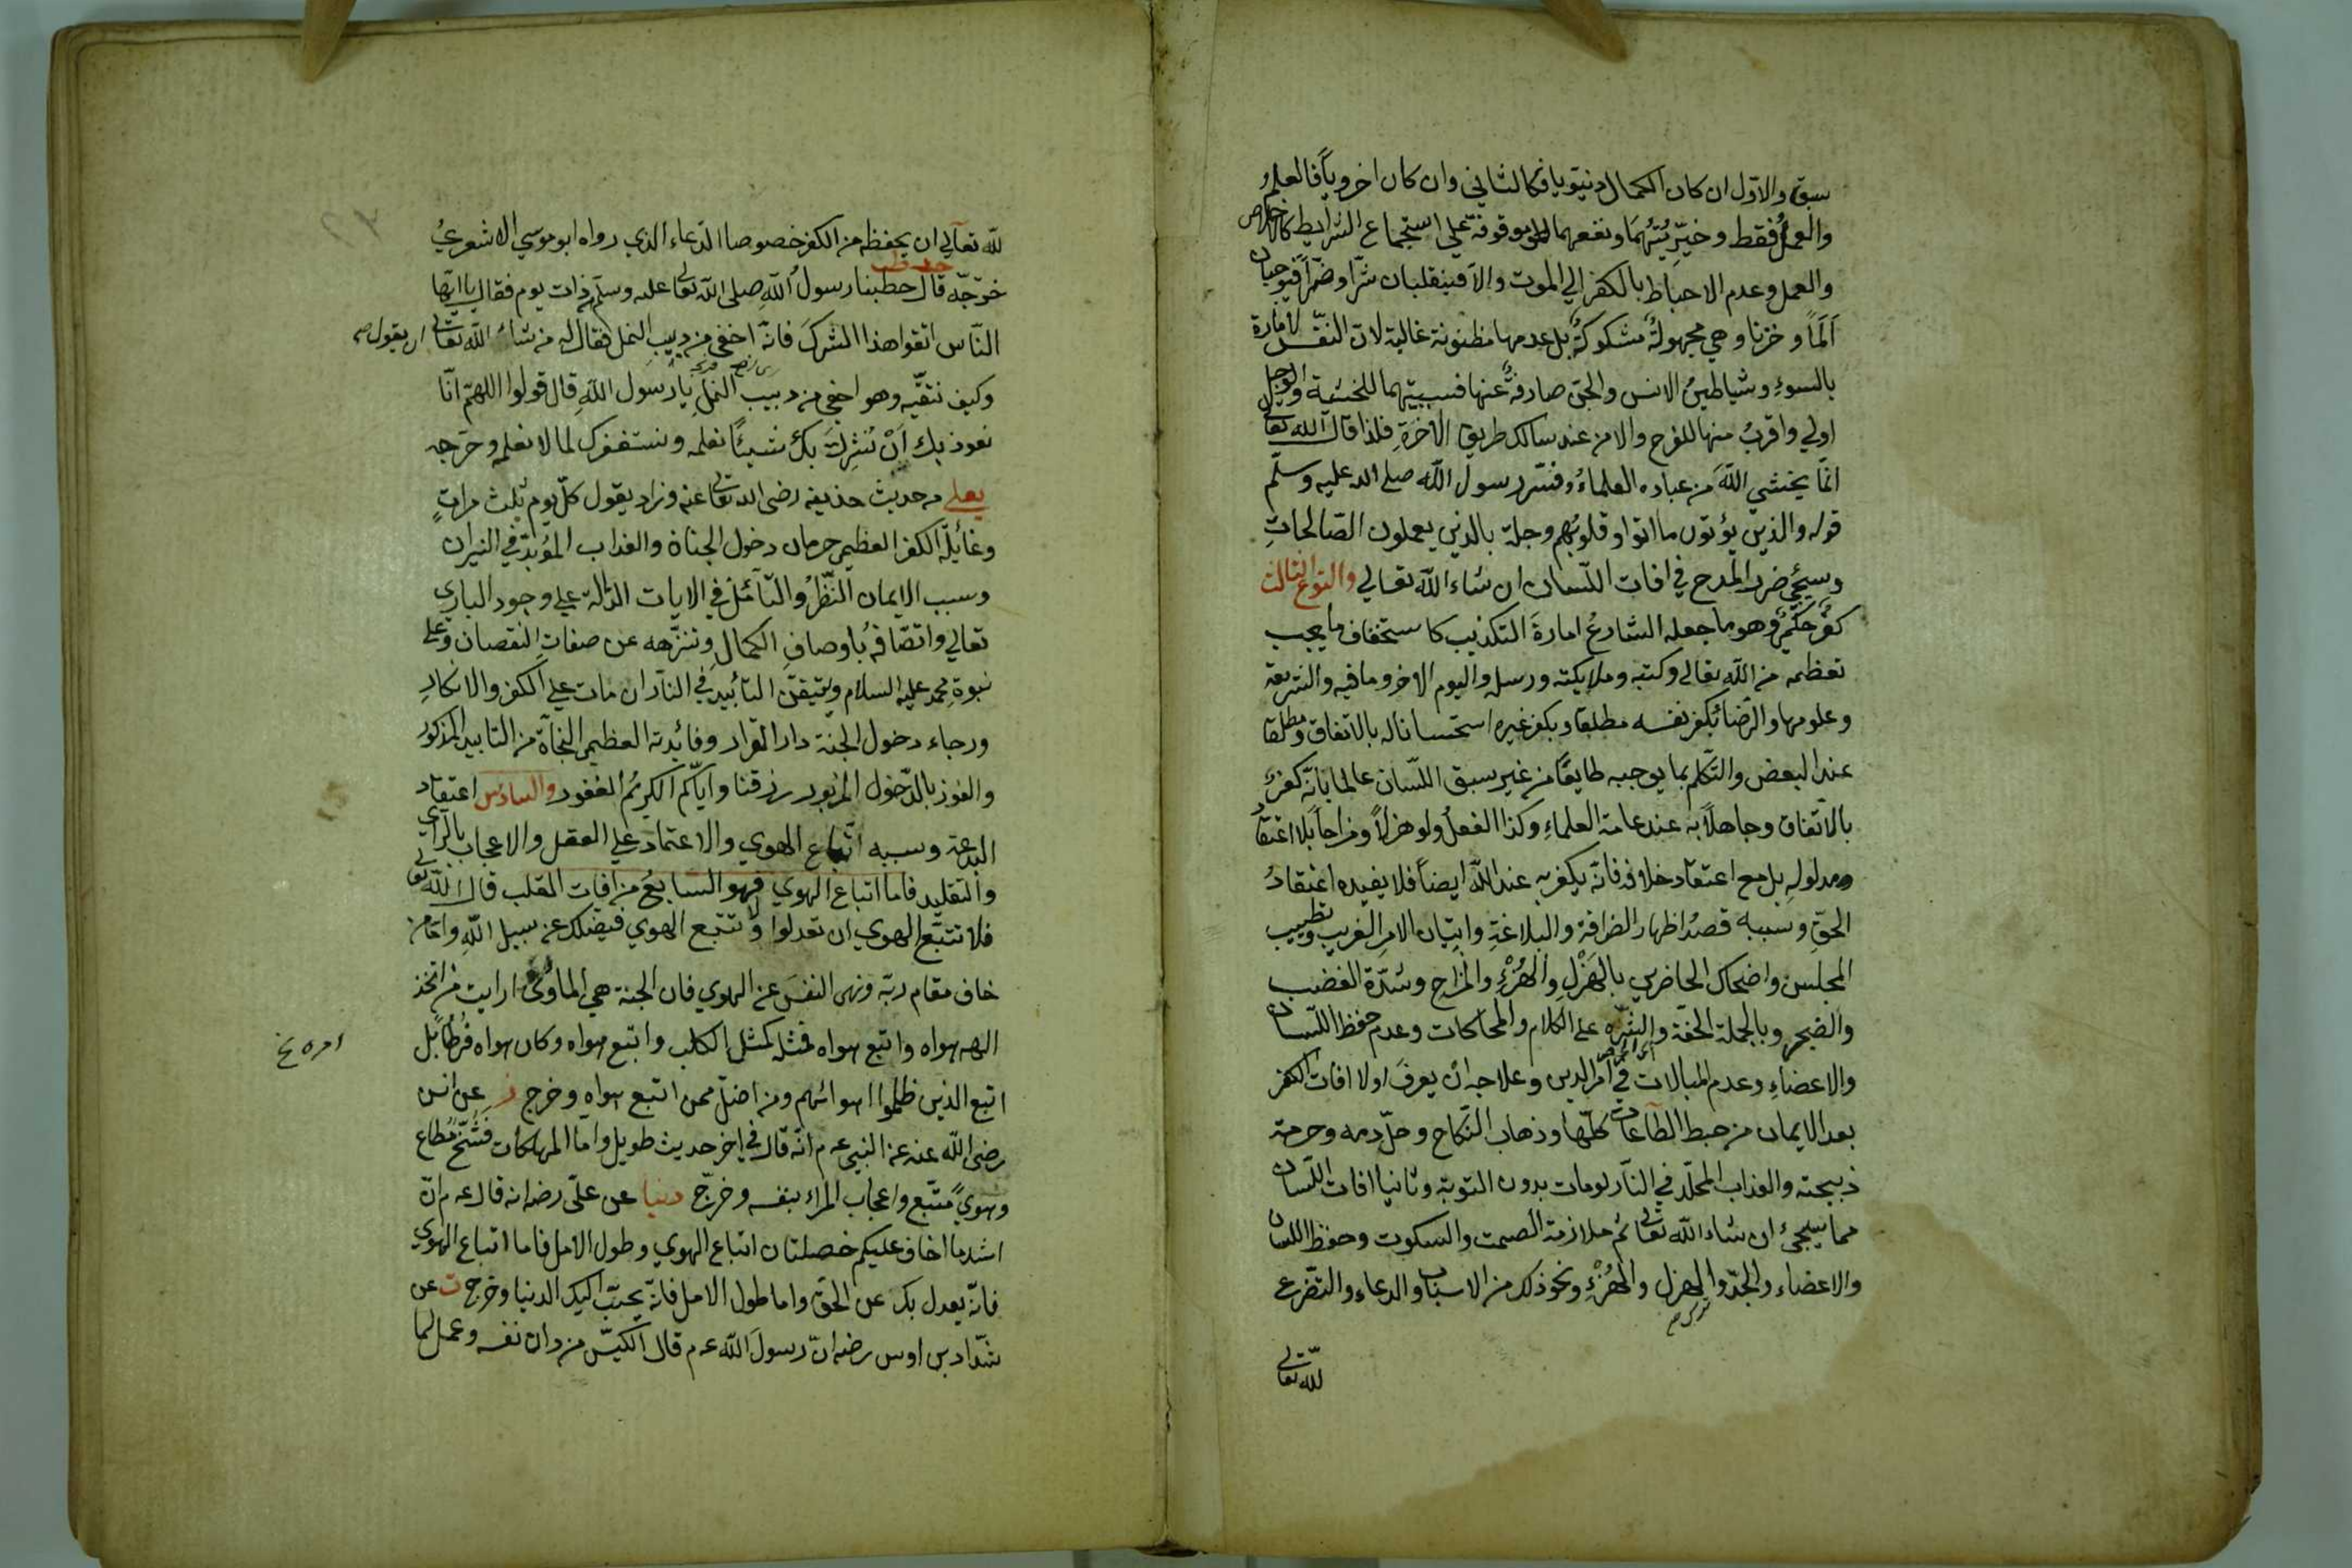 سبق والاول ان كان الكمال دنيويا فكالثاني وان كان اخرويا فالعلم
والعمل فقط وخيريتهما ونفعهما موقوفة علي استجماع الشرايط كالاخلاص
والعمل وعدم الاحباط بالكفر الي الموت والا فينقلبان شرا وضرا فيوجبان
الما وحزنا وهي مجهولة مشكوكة بل عدمها مظنونة غالبة لان النفس لامارة
بالسوء وشياطين الانس والجن صارفة عنها فسببيتهما للخشية والوجل
اولي واقرب منها للفرح والامن عند سالك طريق الآخرة فلذا قال الله تعالى
انما يخشي الله من عباده العلماء وفسر رسول الله صلى الله عليه وسلم
قوله والذين يؤتون ما اتوا وقلوبهم وجلة بالذين يعملون الصالحات
وسيجئ ضرر المدح في افات اللسان ان شاء الله تعالي والنوع الثالث
كفر حكمي وهو ما جعله الشارع امارة التكذيب كاستخفاف ما يجب
تعظيمه من الله تعالى وكتبه وملايكته ورسله واليوم الاخر وما فيه والشريعة
وعلومها والرضا بكفر نفسه مطلقا وبكفر غيره استحسانا له بالاتفاق ومطلقا
عند البعض والتكلم بما يوجبه طايعا من غير سبق اللسان عالما بانه كفر
بالاتفاق وجاهلا به عند عامة العلماء وكذا الفعل ولو هزلا ومزاحا بلا اعتقاد
مدلوله بل مع اعتقاد خلافه فانه يكفر به عند الله ايضا فلا يفيده اعتقاد
الحق وسببه قصد اظهار الظرافة والبلاغة واتيان الامر الغريب وتطييب
المجلس واضحاك الحاضرين بالهزل والهزء والمزاح وشدة الغضب
والضجر وبالجملة الخفة والشره على الكلام والمحاكات وعدم حفظ اللسان
والاعضاء وعدم المبالات في امر الدين وعلاجه ان يعرف اولا افات الكفر
بعد الايمان من حبط الطاعات كلها وذهاب النكاح وحل دمه وحرمة
ذبيحته والعذاب المخلد في النار لو مات بدون التوبة وثانيا افات اللسان
مما سيجئ ان شاء الله تعالى ثم ملازمة الصمت والسكوت وحفظ اللسان
والاعضاء والجد والهزل والهزء ونحو ذلك من الاسباب والدعاء والتضرع
لله تعالى
لله تعالي ان يحفظه من الكفر خصوصا الدعاء الذي رواه ابو موسي الاشعري
خرجه قال خطبنا رسول الله صلى الله تعالى عليه وسلم ذات يوم فقال يا ايها
الناس اتقوا هذا الشرك فانه اخفي من دبيب النمل فقال له من شاء الله تعالى ان يقول
وكيف نتقيه وهو اخفي من دبيب النمل يا رسول الله قال قولوا اللهم انا
نعوذ بك ان نشرك بك شيئا نعلمه ونستغفرك لما لا نعلمه وخرجه
يعلي من حديث حذيفه رضى الله تعالى عنه وزاد يقول كل يوم ثلث مرات
وغائلة الكفر العظيم حرمان دخول الجنان والعذاب المؤبد في النيران
وسبب الايمان النظر والتأمل في الايات الدالة علي وجود الباري
تعالي واتصافه باوصاف الكمال وتنزهه عن صفات النقصان وعلى
نبوة محمد عليه السلام وتيقن التأبيد في النار ان مات علي الكفر والانكار
ورجاء دخول الجنة دار القرار وفائدته العظيم النجاة من التابيد المذكور
والفوز بالدخول المزبور رزقنا واياكم الكريم الغفور والسادس اعتقاد
البدعة وسببه اتباع الهوي والاعتماد علي العقل والاعجاب بالراي
والتقليد فاما اتباع الهوي فهو السابع من افات القلب قال الله تعالى
فلا تتبع الهوي ان تعدلوا ولا تتبع الهوي فيضلك عن سبيل الله واما من
خاف مقام ربه ونهى النفس عن الهوي فان الجنة هي المأوى ارايت من اتخذ
الهه هواه واتبع هواه فمثله كمثل الكلب واتبع هواه وكان امره فرطا بل
امره نخ
اتبع الذين ظلموا اهوائهم ومن اضل ممن اتبع هواه وخرج ز عن انس
رضى الله عنه عن النبي عم انه قال في اخر حديث طويل واما المهلكات فشح مطاع
وهوي متبع واعجاب المرء بنفسه وخرج دنيا عن علي رضه انه قال عم ان
اشد ما اخاف عليكم خصلتان اتباع الهوي وطول الامل فاما اتباع الهوي
فانه يعدل بك عن الحق واما طول الامل فانه يحبب اليك الدنيا وخرج ت عن
شداد بن اوس رضه ان رسول الله عم قال الكيس من دان نفسه وعمل لما